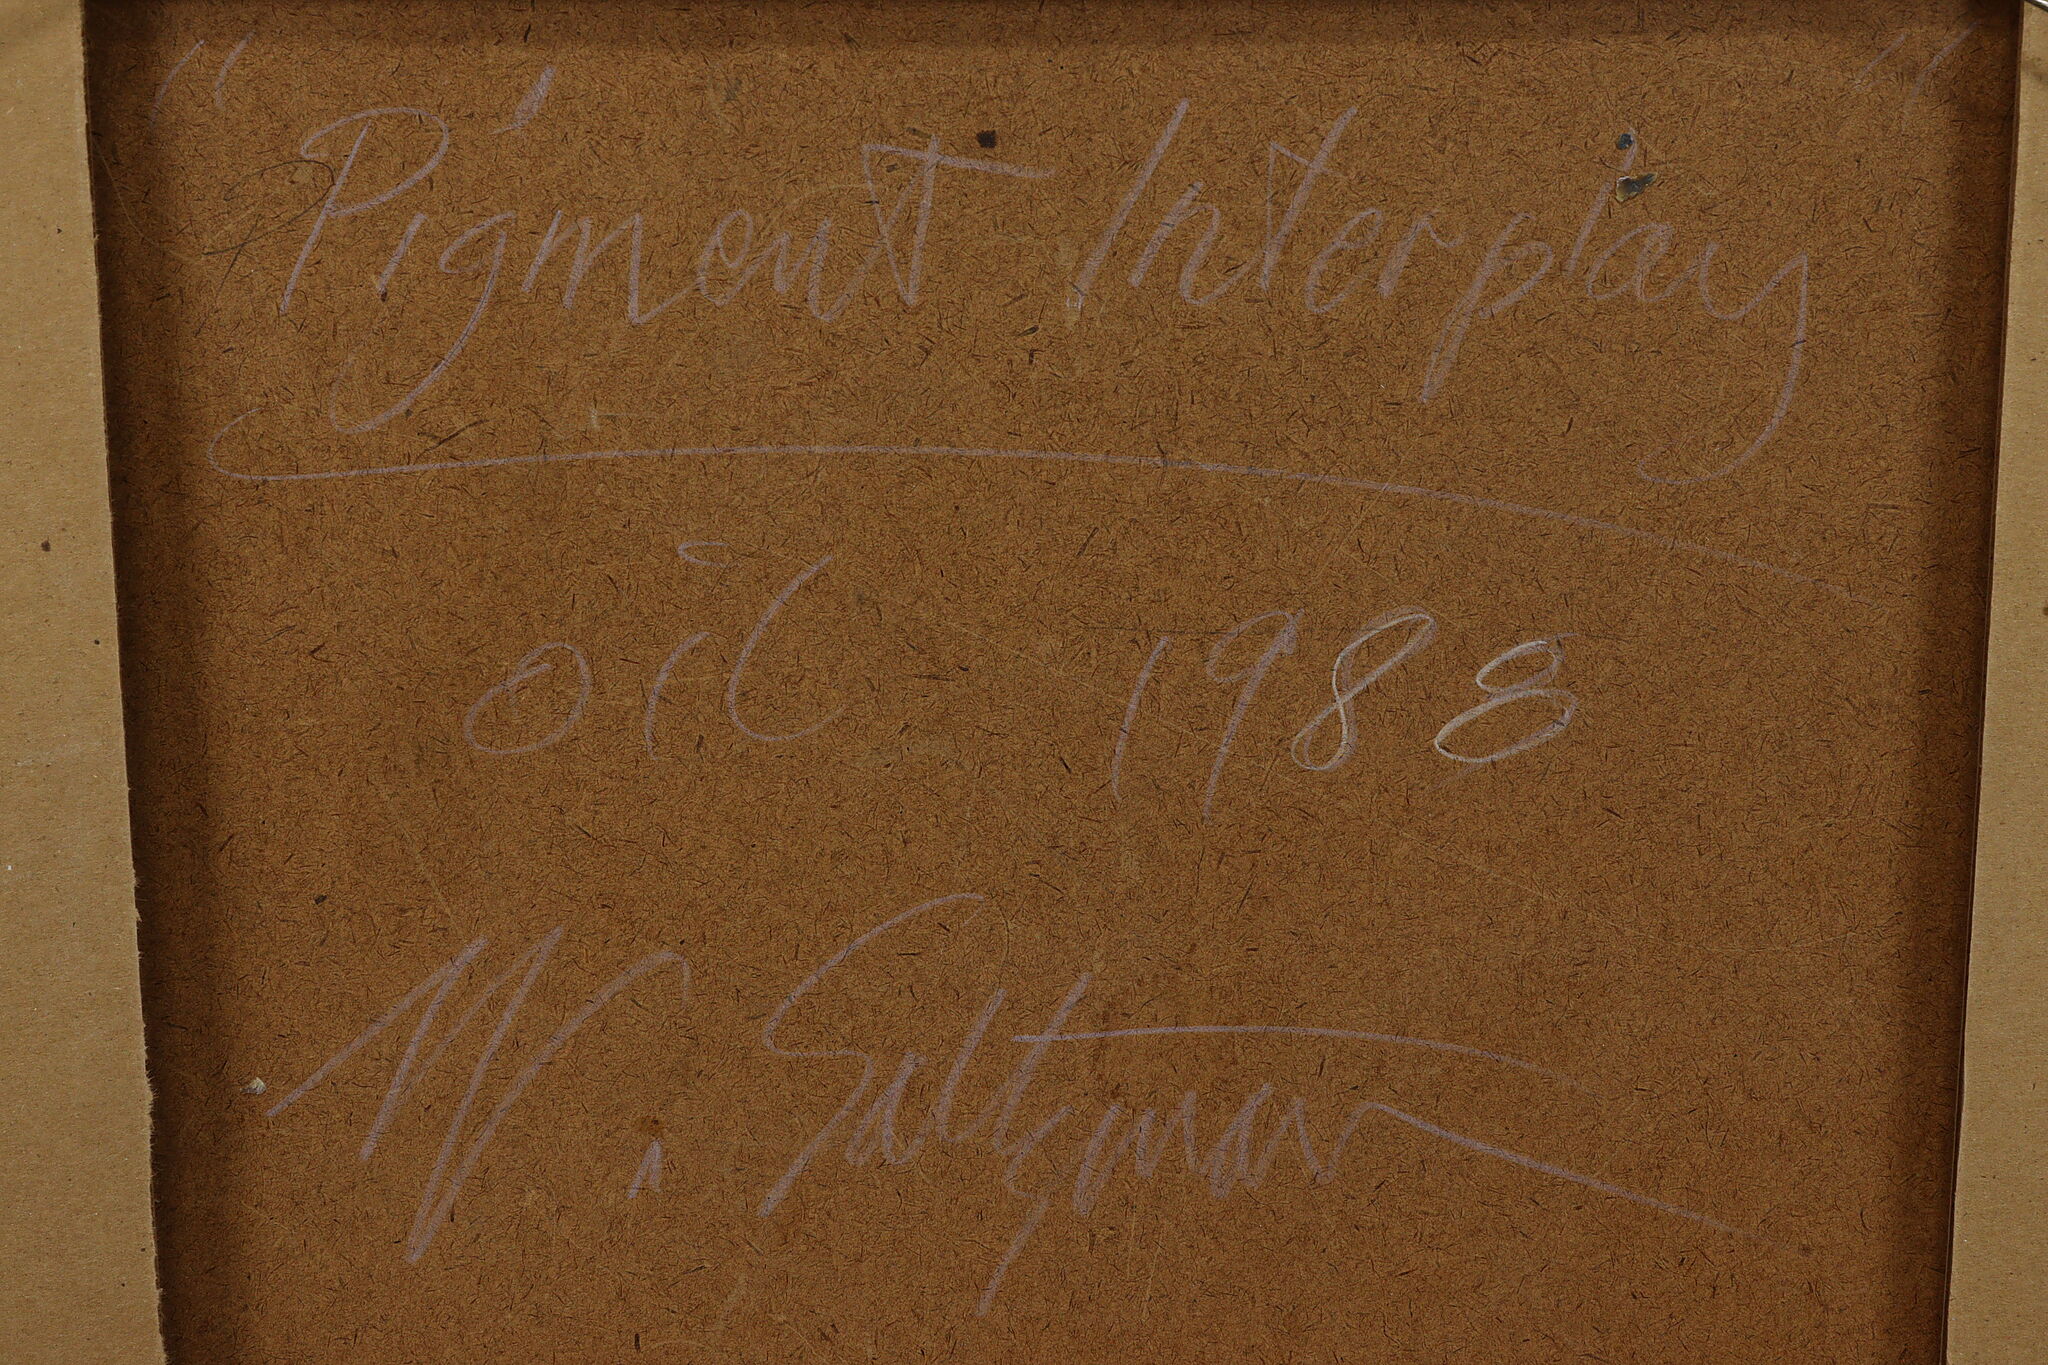 "Pigment Interplay"
oil 1988
W. Saltzman